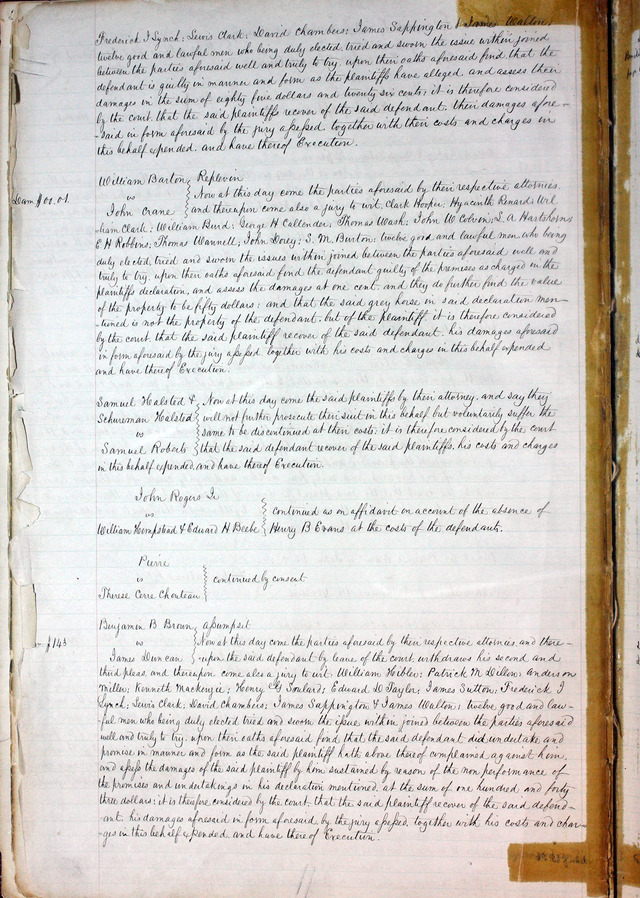 Frederick I Lynch; Lewis Clark; David Chambers; James Sappington & James Walton;
twelve good and lawful men who being duly elected, tried and sworn the issue within joined
between the parties aforesaid well and truly to try, upon their oaths aforesaid find that the
defendant is guilty in manner and form as the plaintiffs have alleged, and assess their
damages in the sum of eighty five dollars and twenty six cents; it is therefore considered
by the court, that the said plaintiffs recover of the said defendant, their damages afore-
-said in form aforesaid by the jury assessed, together with their costs and charges in
this behalf expended, and have thereof Execution.
William Barton, Replevin
vs Now at this day come the parties aforesaid by their respective attornies
Dam $01.01. John Crane and thereupon come also a jury to wit; Clark Hooper; Hyacinth Renard; Wil
liam Clark; William Burd; George H Callender; Thomas Wash; John W Colvin; L A Hartshorn;
E H Robbins; Thomas Wannell; John Dorey; S. M. Burton; twelve good and lawful men who being
duly elected, tried and sworn the issues within joined between the parties aforesaid well and
truly to try, upon their oaths aforesaid fond the defendant guilty of the premises as charged in the
plaintiffs declaration, and assess the damages at one cent, and they do further find the value
of the property to be fifty dollars; and that the said grey horse in said declaration men-
-tioned is not the property of the defendant, but of the plaintiff, it is therefore considered
by the court, that the said plaintiff recover of the said defendant, his damages aforesaid
in form aforesaid by the jury assessed together with his costs and charges in this behalf expended
and have thereof Execution.
Samuel Halsted & Now at this day come the said plaintiffs by their attorney, and say they
Schureman Halsted will not further prosecute their suit in this behalf but voluntarily suffer the
vs same to be discontinued at their costs; it is therefore considered by the court
Samuel Roberts that the said defendant recover of the said plaintiffs, his costs and charges
in this behalf expended, and have thereof Execution.
John Rogers Jr
vs continued as on affidavit on account of the absence of
William Hempstead & Edward H Beebe Henry B Evans at the costs of the defendants.
Pierre
vs continued by consent
Therese Cerre Chouteau
Benjamin B Brown, assumpsit
$143 vs Now at this day come the parties aforesaid by their respective attornies, and there-
James Duncan -upon the said defendant by leave of the court, withdraws his second and
third pleas, and thereupon come also a jury to wit, William Hibler; Patrick M Dillon; anderson
Miller; Kenneth Mackenzie; Henry G Soulard; Edward D Taylor; James Sutton; Frederick I
Lynch; Lewis Clark; David Chambers; James Sappington & James Walton; twelve good and law-
-ful men who being duly elected tried and sworn the issue within joined between the parties aforesaid
well and truly to try, upon their oaths aforesaid fond that the said defendant did undertake and
promise in manner and form as the said plaintiff hath above thereof complained against him,
and assess the damages of the said plaintiff by him sustained by reason of the non performance of
the promises and undertakings in his declaration mentioned, at the sum of one hundred and forty
three dollars; it is therefore considered by the court, that the said plaintiff recover of the said defend-
ant, his damages aforesaid in form aforesaid by the jury assessed, together with his costs and char-
-ges in this behalf expended, and have thereof Execution.